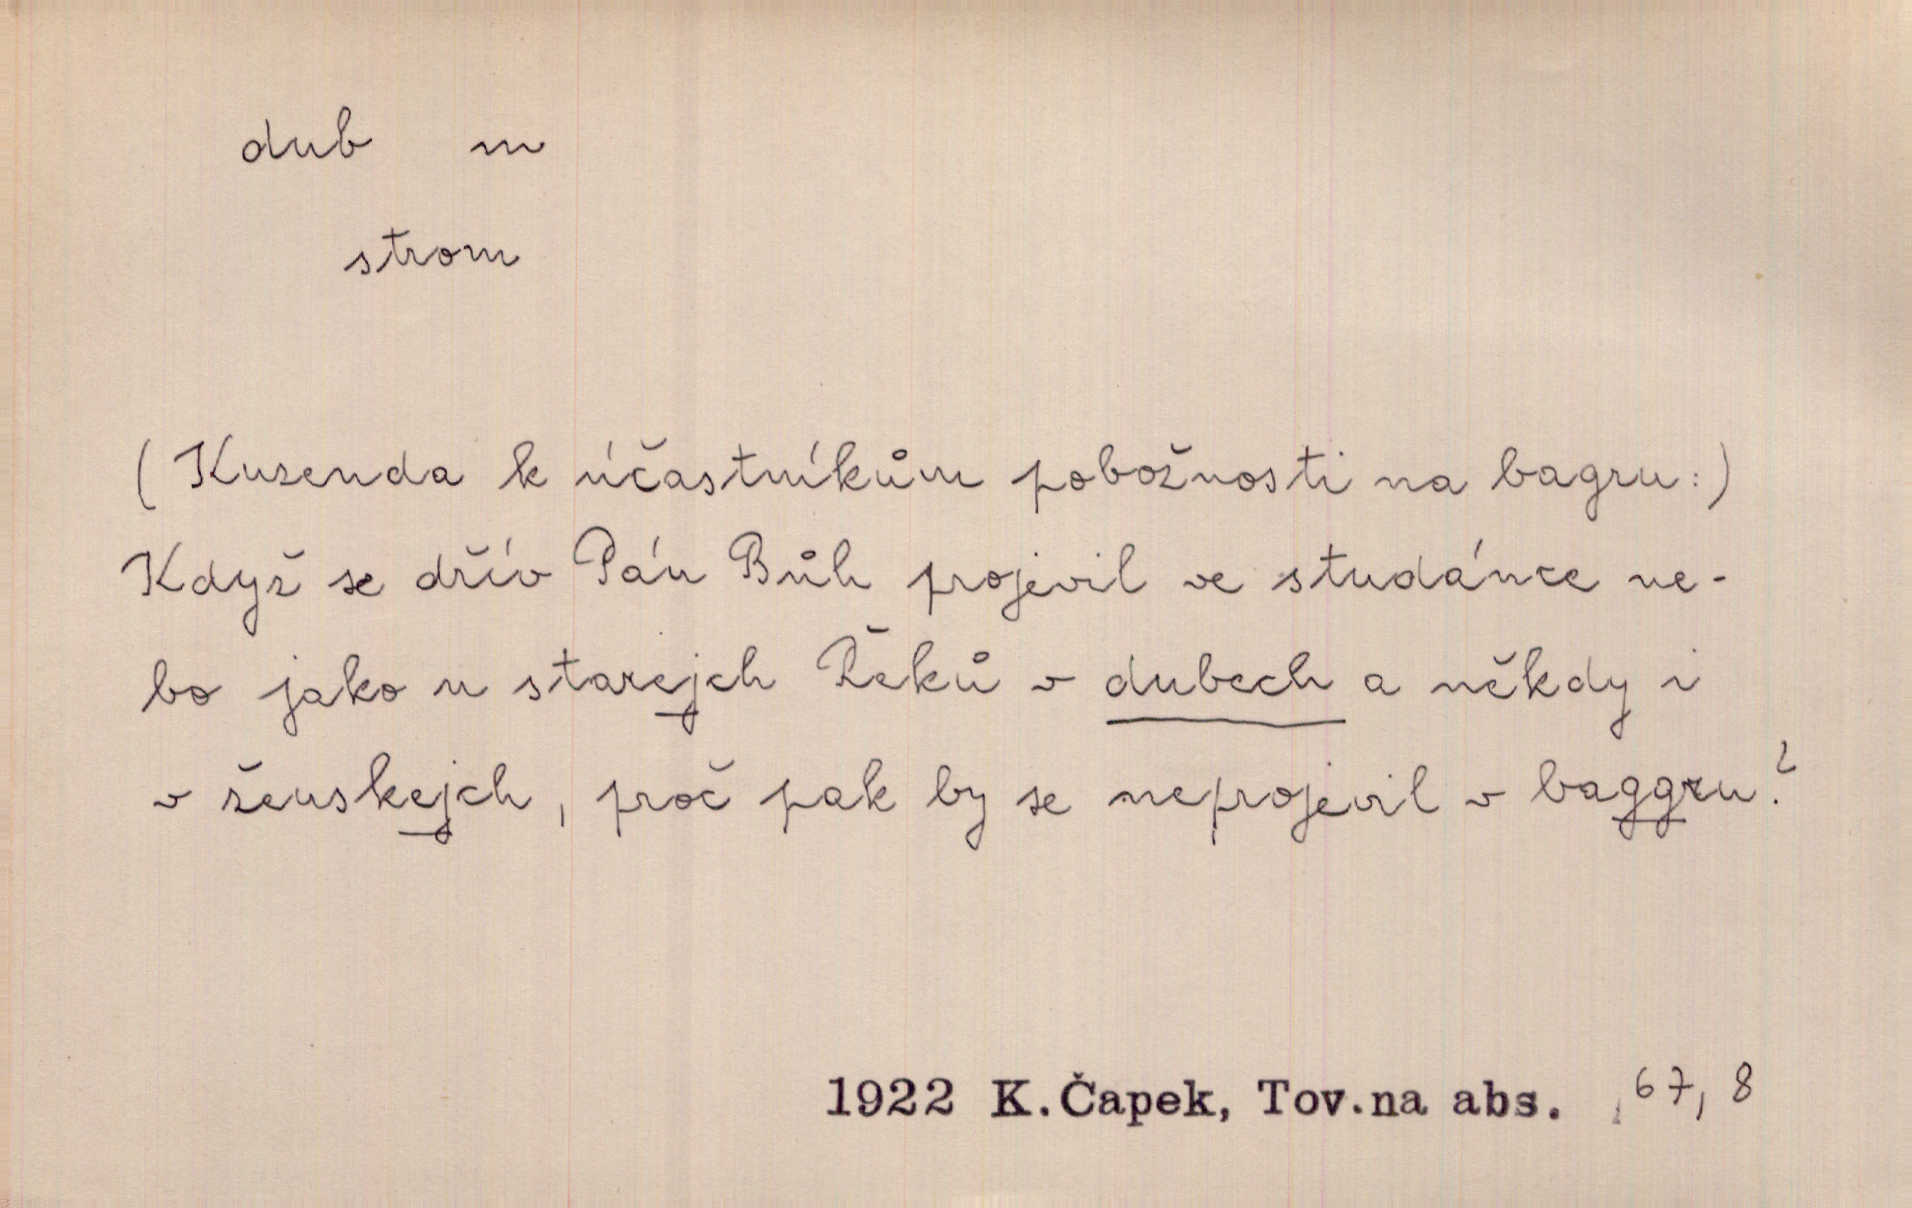 dub m
strom
(Kuzenda k účastníkům pobožnosti na bagru:)
Když se dřív Pán Bůh projevil ve studánce ne-
bo jako u starejch Řeků v dubech a někdy i
v ženskejch, proč pak by se neprojevil v baggru?
1922 K.Čapek, Tov.na abs. , 67, 8